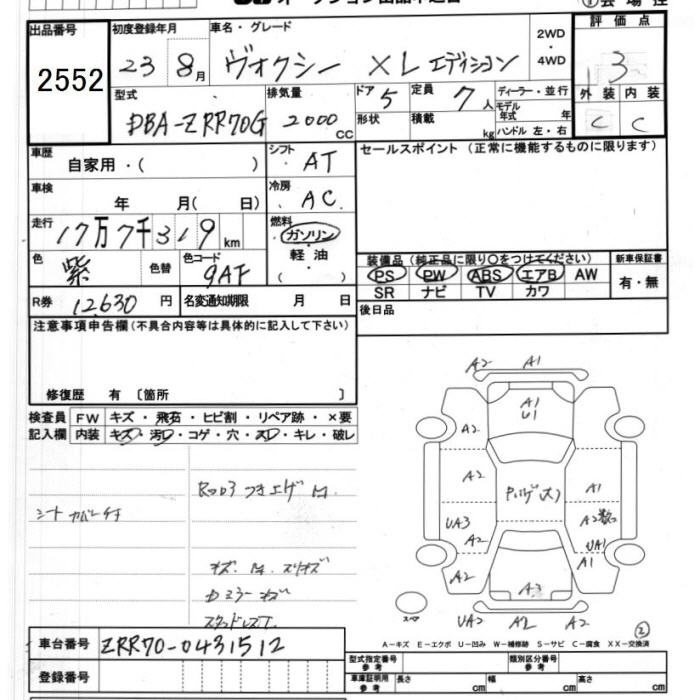 出品番号 2552
初度登録年月 23 8月
車名・グレード ヴォクシー XL エディション
2WD・4WD
評価点 3
型式 DBA-ZRR70G
排気量 2000 CC
ドア 5
形状
定員 7人
積載 kg
ディーラー・並行
モデル年式 年
ハンドル 左・右
外装 C 内装 C
車歴 自家用・( )
シフト AT
セールスポイント (正常に機能するものに限ります)
車検 年 月( 日)
冷房 AC
走行 17万7千319 km
燃料 ガソリン・軽油・( )
色 紫 色替
色コード 9AF
装備品 (純正品に限り○をつけてください)
PS PW ABS エアB AW
SR ナビ TV カワ
新車保証書 有・無
R券 12,630 円
名変通知期限 月 日
後日品
注意事項申告欄 (不具合内容等は具体的に記入して下さい)
修復歴 有 〔箇所 〕
検査員記入欄
FW キズ・飛石・ヒビ割・リペア跡・×要
内装 キズ・汚レ・コゲ・穴・スレ・キレ・破レ
シートカバー付
キズ
スタッドレス
A2 A1
A1
U1
A2
A2 A1
UA3 A2
A2 UA1
A1
A2
A3
UA2 A2 A2
スペア
②
A-キズ E-エクボ U-凹み W-補修跡 S-サビ C-腐食 XX-交換済
車台番号 ZRR70-0431512
登録番号
型式指定番号 参考
類別区分番号 参考
車庫証明用 参考 長さ cm 幅 cm 高さ cm